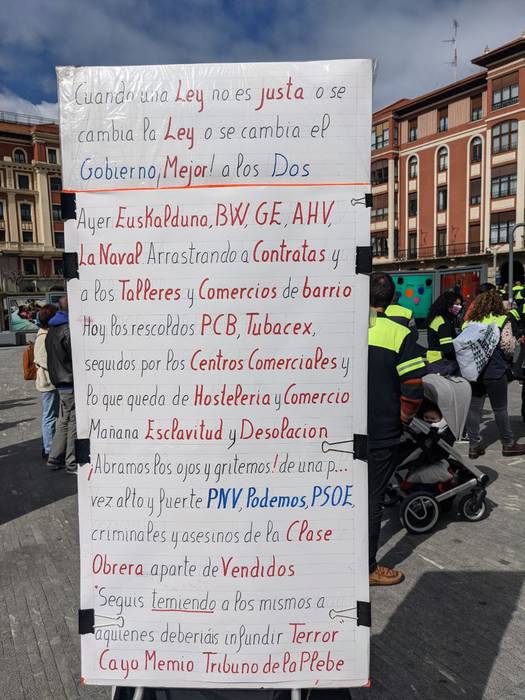 Cuando una Ley no es justa o se
cambia la Ley o se cambia el
Gobierno, Mejor! a los Dos
Ayer Euskalduna, BW, GE, AHV,
La Naval. Arrastrando a Contratas y
a los Talleres y Comercios de barrio
Hoy los rescoldos PCB, Tubacex,
seguidos por los Centros Comerciales y
lo que queda de Hosteleria y Comercio
Mañana Esclavitud y Desolacion
¡Abramos los ojos y gritemos! de una p...
vez alto y fuerte PNV, Podemos, PSOE,
criminales y asesinos de la Clase
Obrera aparte de Vendidos
"Seguis temiendo a los mismos a
aquienes deberiáis infundir Terror
Cayo Memio Tribuno de la Plebe